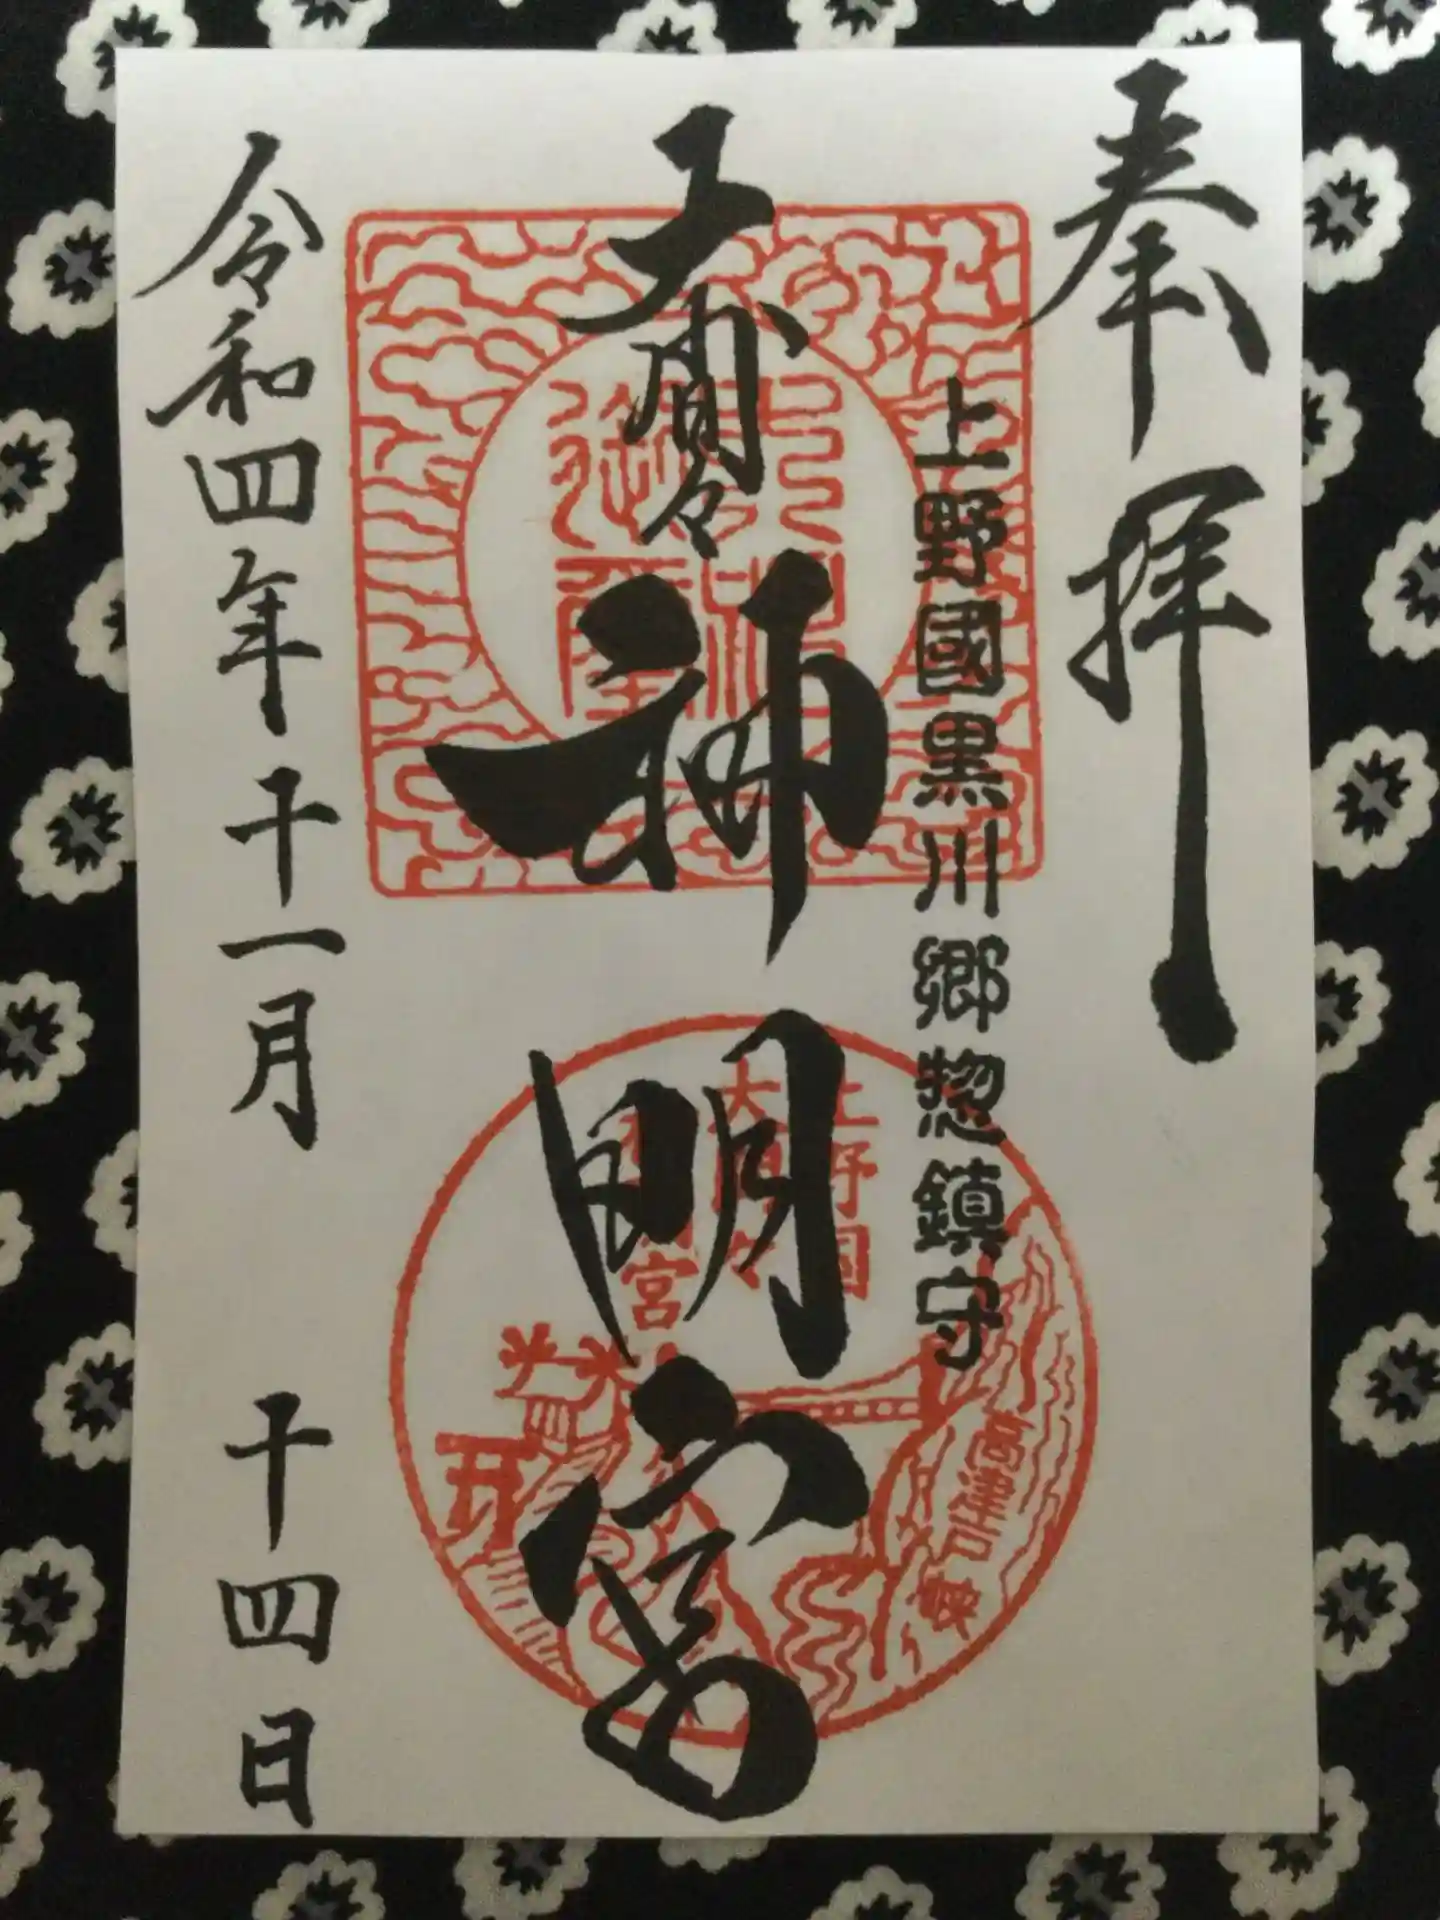 奉拝
上野國黒川郷惣鎮守
大間々
神明宮
令和四年十一月 十四日
上野国
大間々
神明宮
高津戸峡